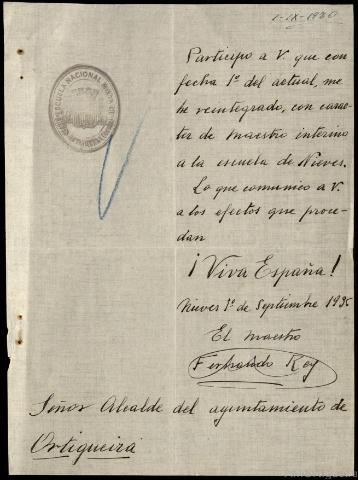 1-IX-1936
Participo a V. que con
fecha 1º del actual, me
he reintegrado, con carac-
ter de maestro interino
a la escuela de Nieves.
Lo que comunico a V.
a los efectos que proce-
dan
¡Viva España!
Nieves 1º de Septiembre 1936
El maestro
Fernando Rey
Señor Alcalde del ayuntamiento de
Ortigueira
ESCUELA NACIONAL MIXTA